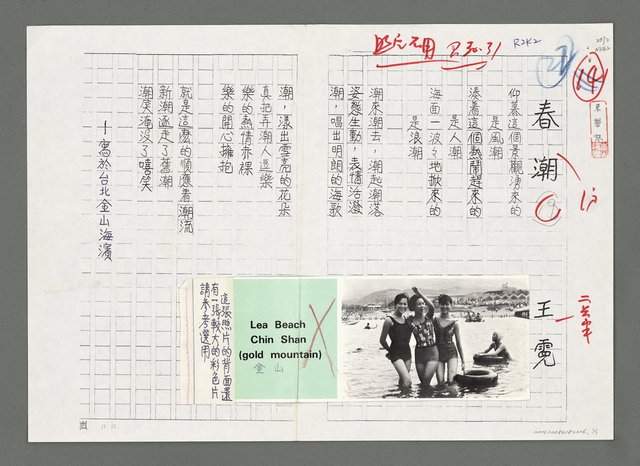 春潮
王霓
仰慕這個景觀湧來的
是風潮
湊着這個熱鬧趕來的
是人潮
海面一波々地掀來的
是浪潮
潮來潮去，潮起潮落
姿態生動，表情活潑
潮，唱出明朗的海歌
潮，濺出雪亮的花朵
真把弄潮人逗樂
樂的熱情赤裸
樂的開心擁抱
就是這麼的順應着潮流
新潮逐走了舊潮
潮笑淹沒了嘻笑
—寫於台北金山海濱
Lea Beach
Chin Shan
(gold mountain)
金山
這張照片的背面還
有一張較大的彩色片
請參考選用
R2K2
14